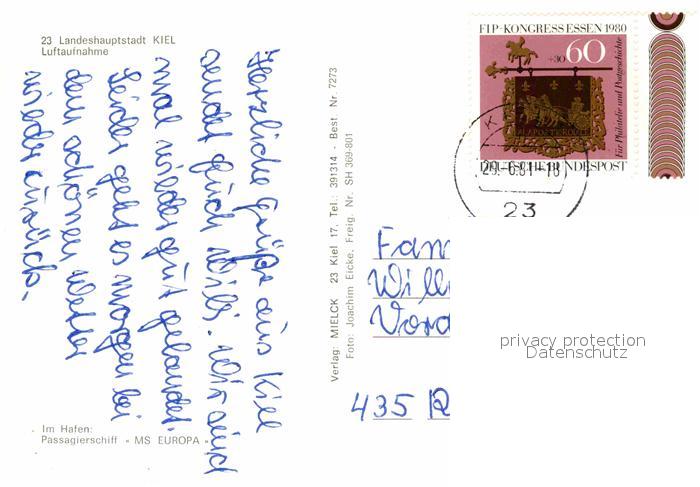 23 Landeshauptstadt KIEL
Luftaufnahme
Herzliche Grüße aus Kiel
sendet Euch Willi. Wir sind
mal wieder gut gelandet.
Leider geht es morgen bei
dem schönen Wetter
wieder zurück.
Im Hafen:
Passagierschiff « MS EUROPA »
Verlag: MIELCK 23 Kiel 17, Tel.: 391314 - Best. Nr. 7273
Foto: Joachim Eicke, Freig. Nr. SH 369-801
FIP-KONGRESS ESSEN 1980
+30 60
Für Philatelie und Postgeschichte
DEUTSCHE BUNDESPOST
K
29.-6.81-18
23
Fam
Willi
Vord
435 R
privacy protection
Datenschutz